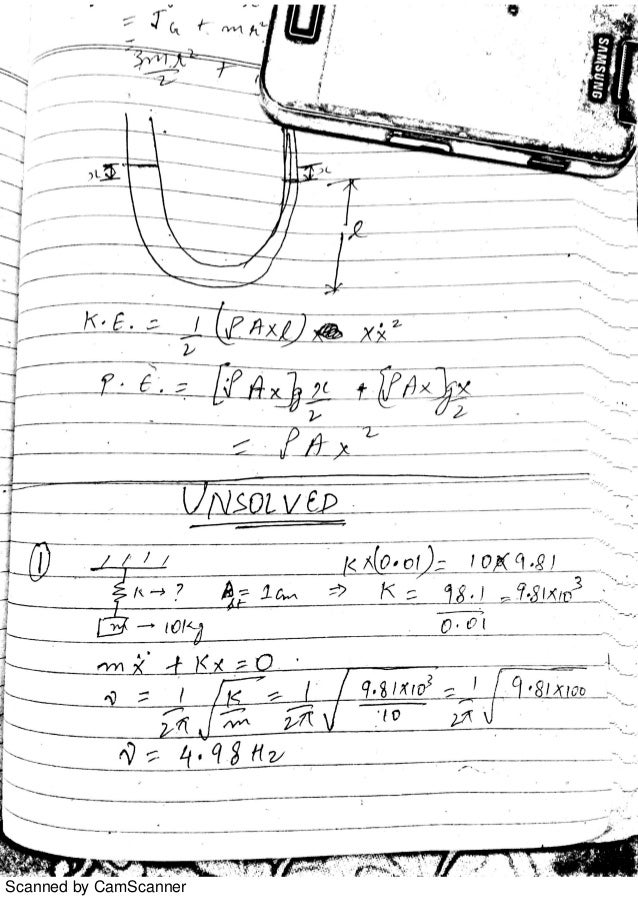 = I_G + mr²
= 3mr²/2 +
SAMSUNG
x x
l
K.E. = 1/2 (ρAxl) × ẋ²
P.E. = [ρAx]g x/2 + [ρAx]gx/2
= ρAx²
UNSOLVED
① K×(0.01) = 10×9.81
K → ? Δst = 1cm ⇒ K = 98.1/0.01 = 9.81×10³
m → 10kg
mẍ + Kx = 0
ν = 1/2π √(K/m) = 1/2π √(9.81×10³/10) = 1/2π √(9.81×100)
ν = 4.98 Hz
Scanned by CamScanner